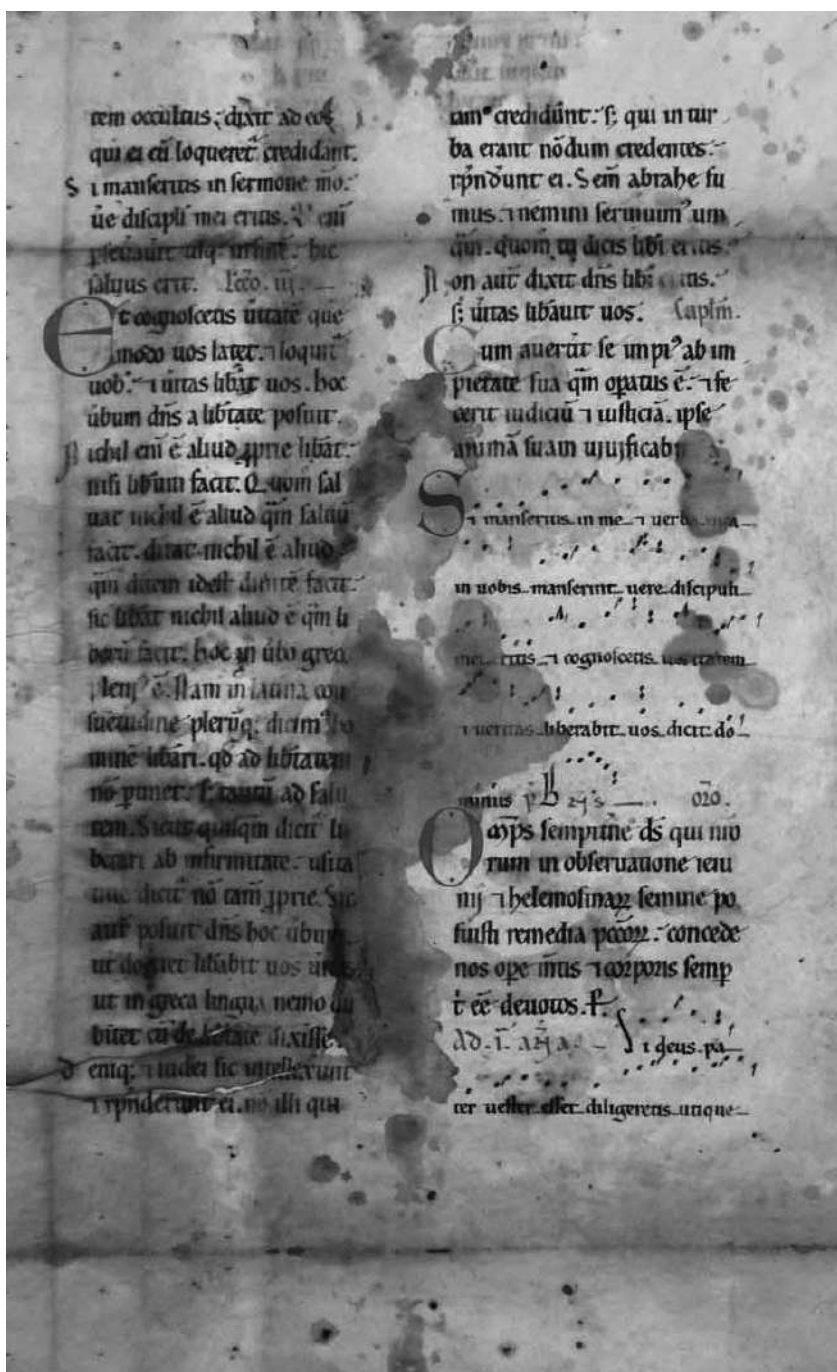 tem occultus; dixit ad eos
qui ei cū loqueret᷑ credidant.
Si manseritis in sermone m̄o.
ūe discipli mei eritis. enī
usq; hic
saluus erit. lcc̄o. iij.
Et cognoscetis ūitatē que
modo uos latet. ⁊ loquit᷑
uob. ⁊ ūitas lib̄at uos. hoc
ūbum dn̄s a lib̄tate posuit.
Nichil eni ē aliud ꝓprie lib̄at.
nisi lib̄um facit. Quom̄ sal
uat nichil ē aliud qm̄ saluū
facit. ditat nichil ē aliud
qm̄ diuitē facit.
sic lib̄at nichil aliud ē qm̄ li
berū facit. hoc in ūbo greco
ē. Nam in latina con
suetudine plerūq; dicim᷒ ho
minē lib̄ari. qd̄ ad lib̄tatem
nō ꝑtinet. s; tantū ad salu
tem. Sicut quisqm̄ dicit᷑ li
berari ab infirmitate. usita
dicit᷑ nō tam̄ ꝓprie. Sic
aut̄ posuit dn̄s hoc ūbum
ut lib̄abit uos ūitas
ut in greca lingua nemo du
bitet cū de lib̄tate dixisse.
deniq; ⁊ iudei sic intellexunt
⁊ rn̄derunt ei. nō illi qui
iam᷒ credidūnt. s; qui in tur
ba erant nōdum credentes.
rn̄dūnt ei. Sem̄ abrahe su
mus. ⁊ nemini seruiuim᷒ um
qm̄. quom̄ tu dicis lib̄i eritis.
Non aut̄ dixit dn̄s lib̄i eritis.
s; ūitas lib̄auit uos. Capĺm.
Cum auert̄it se impi᷒ ab im
pietate sua qm̄ oꝑatus ē. ⁊ fe
cerit iudiciū ⁊ iusticiā. ipse
animā suam uiuificabit
Si manseritis in me ⁊ uerba mea
in uobis manserint uere discipuli
mei eritis ⁊ cognoscetis ueritatem
⁊ ueritas liberabit uos dicit do
minus oro.
Omp̄s sempit̄ne ds̄ qui nr̄o
rum in obseruatione ieiu
nij ⁊ helemosinaꝝ semine po
suisti remedia pc̄c̄oꝝ. concede
nos oꝑe m̄tis ⁊ corporis semꝑ
t̄ ēē deuotos. P.
AD. I. Si deus pa
ter uester esset diligeretis utique